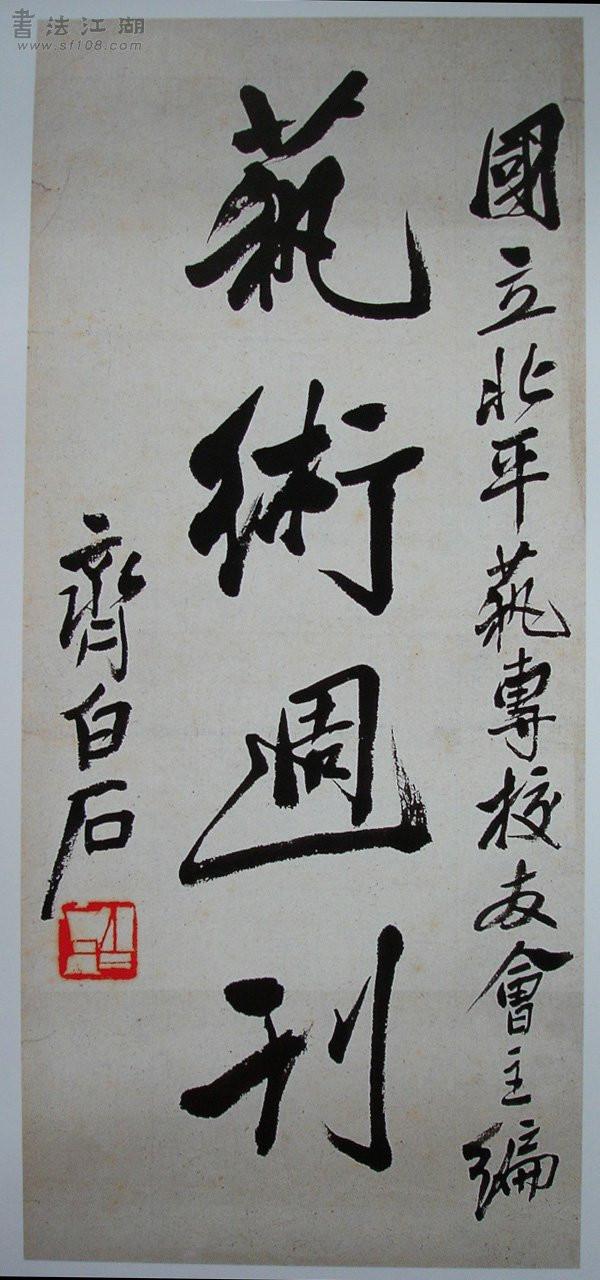 書法江湖
www.sf108.com
國立北平蓺專校友會主編
蓺術週刊
齊白石